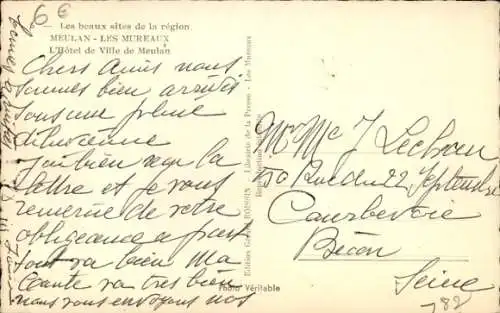 6€
Les beaux sites de la région
MEULAN - LES MUREAUX
L'Hôtel de Ville de Meulan
Chers Amis nous
sommes bien arrivés
sous une pluie
diluvienne
bien reçu la
lettre et je vous
remercie de votre
obligeance a part
tout va bien Ma
santé va très bien
nous vous envoyons nos
Photo Véritable
Librairie de la Presse - Les Mureaux
Mr Mme J
50 Rue du 22 Septembre
Courbevoie
Bécon
Seine
782